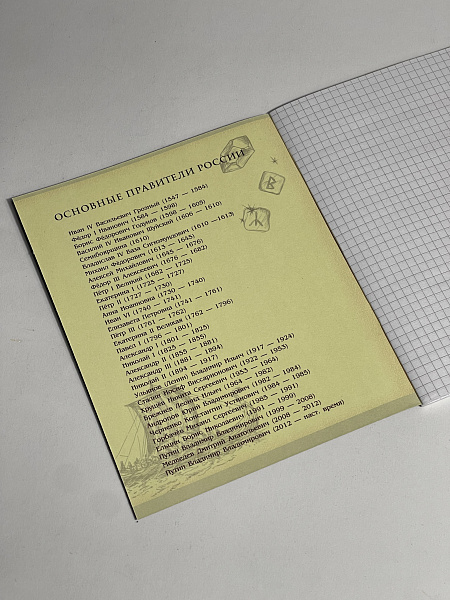 ОСНОВНЫЕ ПРАВИТЕЛИ РОССИИ
В
Ж
Иван IV Васильевич Грозный (1547 — 1584)
Фёдор I Иванович (1584 — 1598)
Борис Фёдорович Годунов (1598 — 1605)
Василий IV Иванович Шуйский (1606 — 1610)
Семибоярщина (1610)
Владислав IV Ваза Сигизмундович (1610 — 1613)
Михаил Фёдорович (1613 — 1645)
Алексей Михайлович (1645 — 1676)
Фёдор III Алексеевич (1676 — 1682)
Пётр I Великий (1682 — 1725)
Екатерина I (1725 — 1727)
Пётр II (1727 — 1730)
Анна Иоанновна (1730 — 1740)
Иван VI (1740 — 1741)
Елизавета Петровна (1741 — 1761)
Пётр III (1761 — 1762)
Екатерина II Великая (1762 — 1796)
Павел I (1796 — 1801)
Александр I (1801 — 1825)
Николай I (1825 — 1855)
Александр II (1855 — 1881)
Александр III (1881 — 1894)
Николай II (1894 — 1917)
Ульянов (Ленин) Владимир Ильич (1917 — 1924)
Сталин Иосиф Виссарионович (1922 — 1953)
Хрущёв Никита Сергеевич (1953 — 1964)
Брежнев Леонид Ильич (1964 — 1982)
Андропов Юрий Владимирович (1982 — 1984)
Черненко Константин Устинович (1984 — 1985)
Горбачёв Михаил Сергеевич (1985 — 1991)
Ельцин Борис Николаевич (1991 — 1999)
Путин Владимир Владимирович (1999 — 2008)
Медведев Дмитрий Анатольевич (2008 — 2012)
Путин Владимир Владимирович (2012 — наст. время)